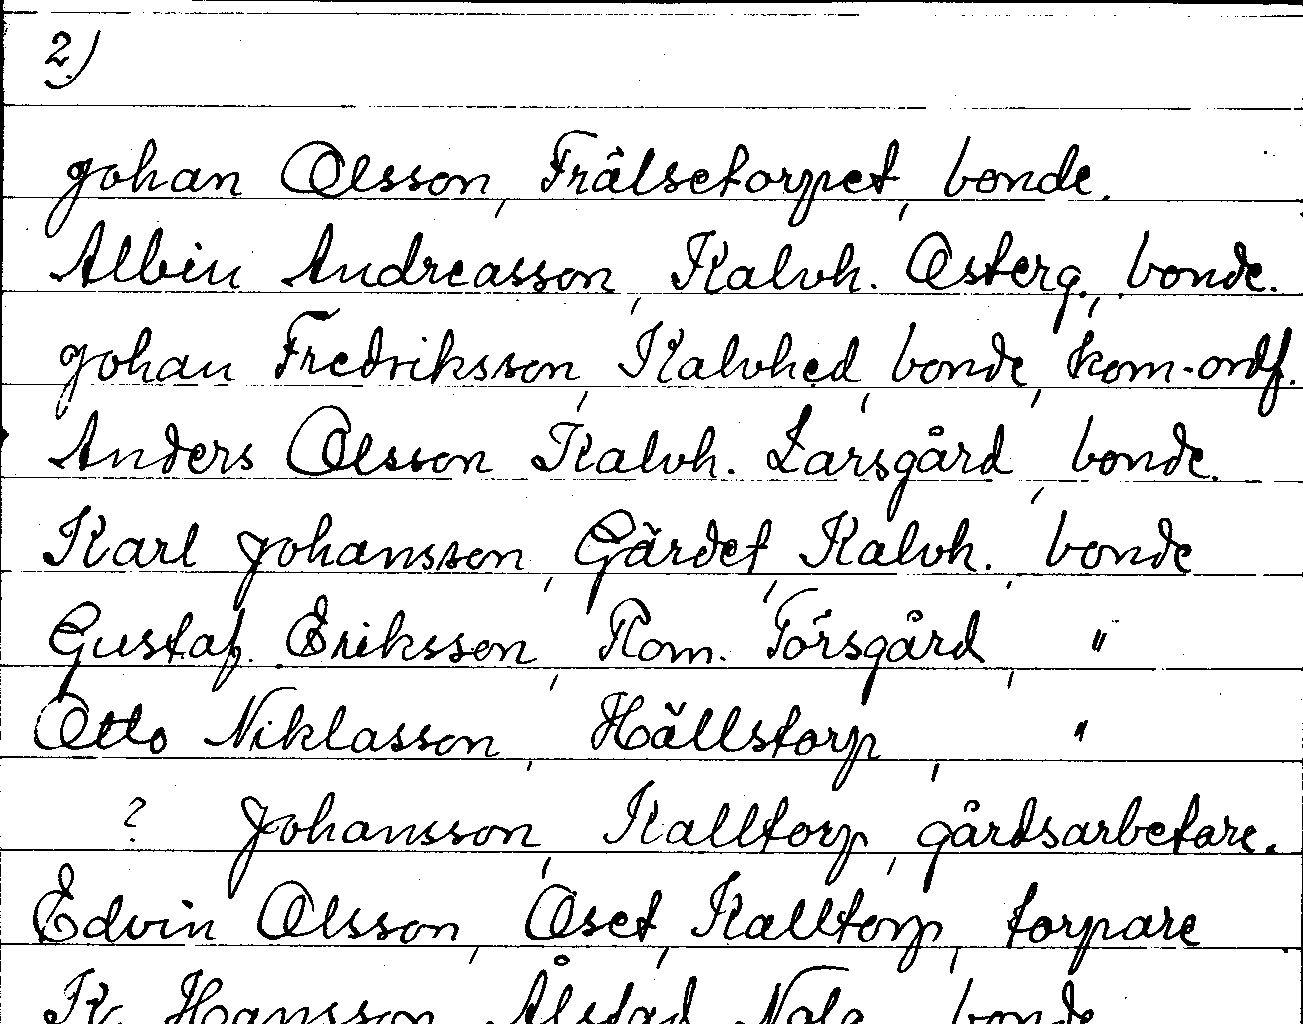 2)
Johan Olsson, Frälsetorpet, bonde.
Albin Andreasson, Kalvh. Österg., bonde.
Johan Fredriksson, Kalvhed, bonde, kom-ordf.
Anders Olsson Kalvh. Larsgård, bonde.
Karl Johansson, Gärdet, Kalvh., bonde
Gustaf Eriksson, Rom. Törsgård, "
Otto Niklasson, Hällstorp, "
? Johansson, Kalltorp, gårdsarbetare.
Edvin Olsson, Åset, Kalltorp, torpare
K. Hansson, Ålstad, Nola, bonde